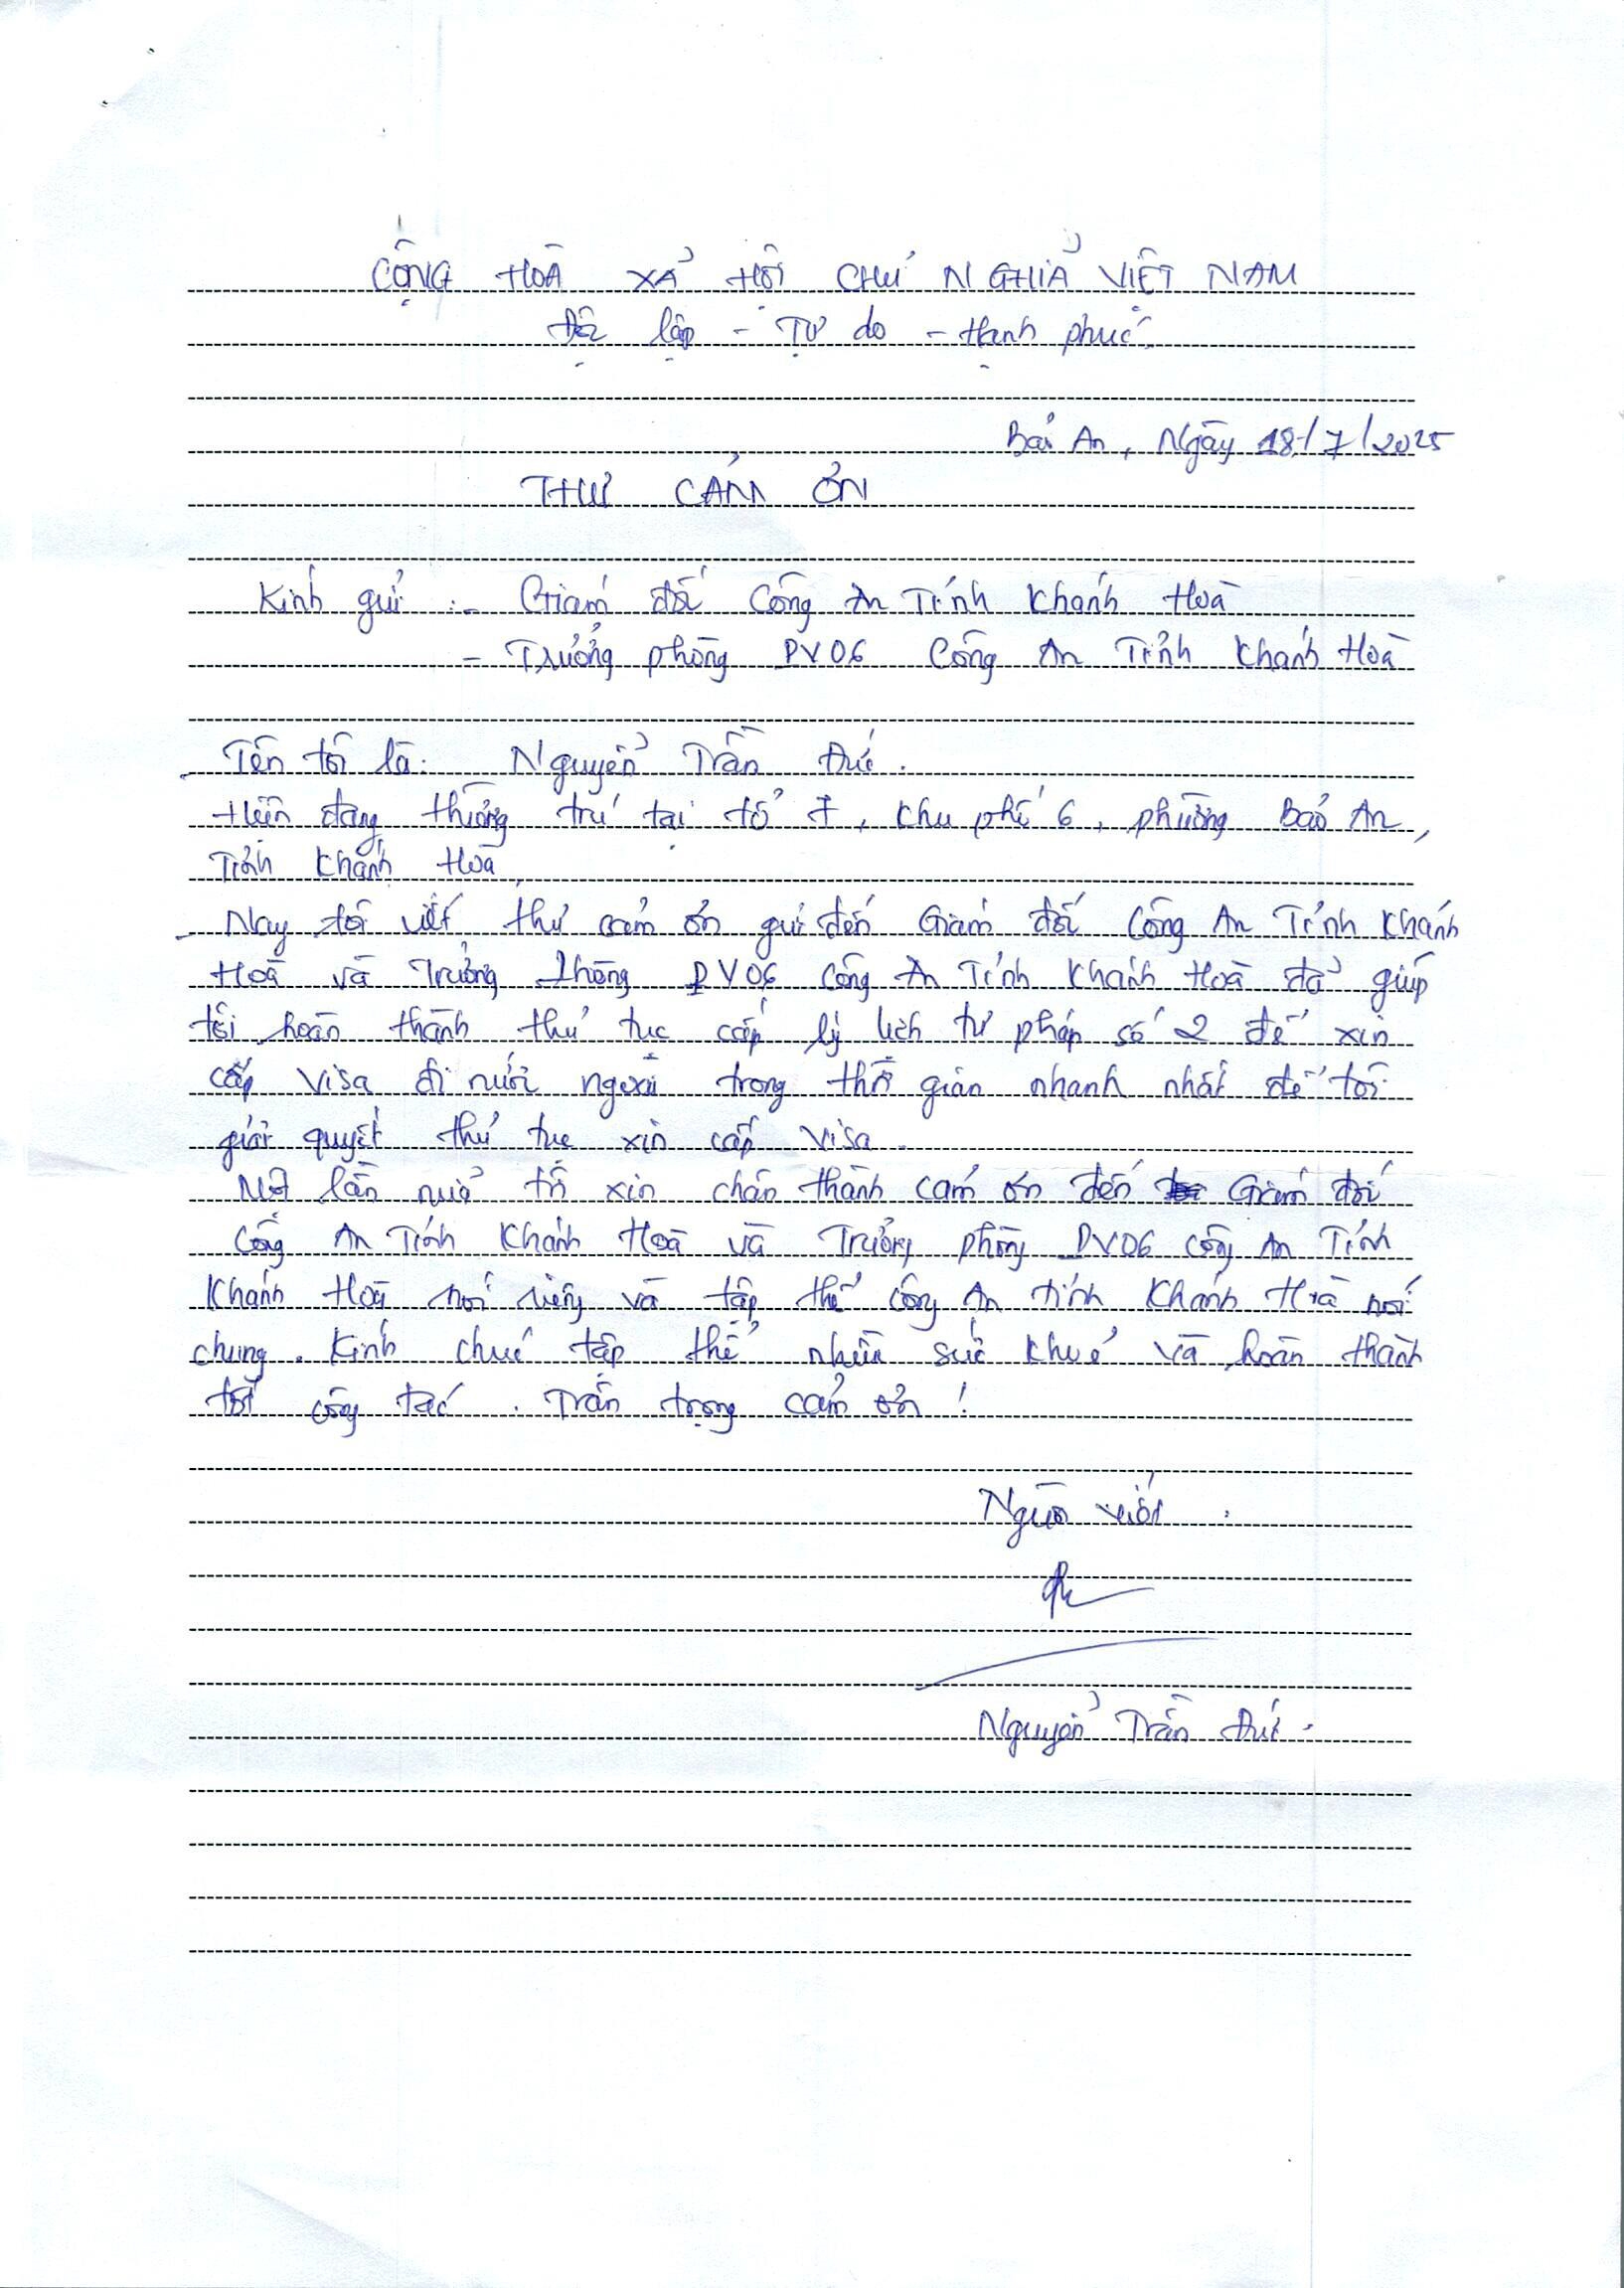 CỘNG HOÀ XẢ HỘI CHỦ NGHIẢ VIỆT NAM
Độc lập - Tự do - Hạnh phúc
Bảo An, Ngày 18/7/2025
THƯ CẢM ƠN
Kính gửi :- Giám đốc Công An Tỉnh Khánh Hoà
- Trưởng phòng PV06 Công An Tỉnh Khánh Hoà
Tên tôi là: Nguyển Trần Đức.
Hiện đang thường trú tại tổ 7, khu phố 6, phường Bảo An,
Tỉnh Khánh Hoà,
Nay tôi viết thư cảm ơn gửi đến Giám đốc Công An Tỉnh Khánh
Hoà và Trưởng Phòng PV06 Công An Tỉnh Khánh Hoà đả giúp
tôi hoàn thành thủ tục cấp lý lịch tư pháp số 2 để xin
cấp visa đi nước ngoài trong thời gian nhanh nhất để tôi
giải quyết thủ tục xin cấp visa.
Một lần nửa tôi xin chân thành cảm ơn đến Giám đốc
Công An Tỉnh Khánh Hoà và Trưởng phòng PV06 công An Tỉnh
Khánh Hoà nói riêng và tập thể công An tỉnh Khánh Hoà nói
chung. Kính chúc tập thể nhiều sức khoẻ và hoàn thành
tốt công tác. Trân trọng cảm ơn!
Người viết
Nguyển Trần Đức.